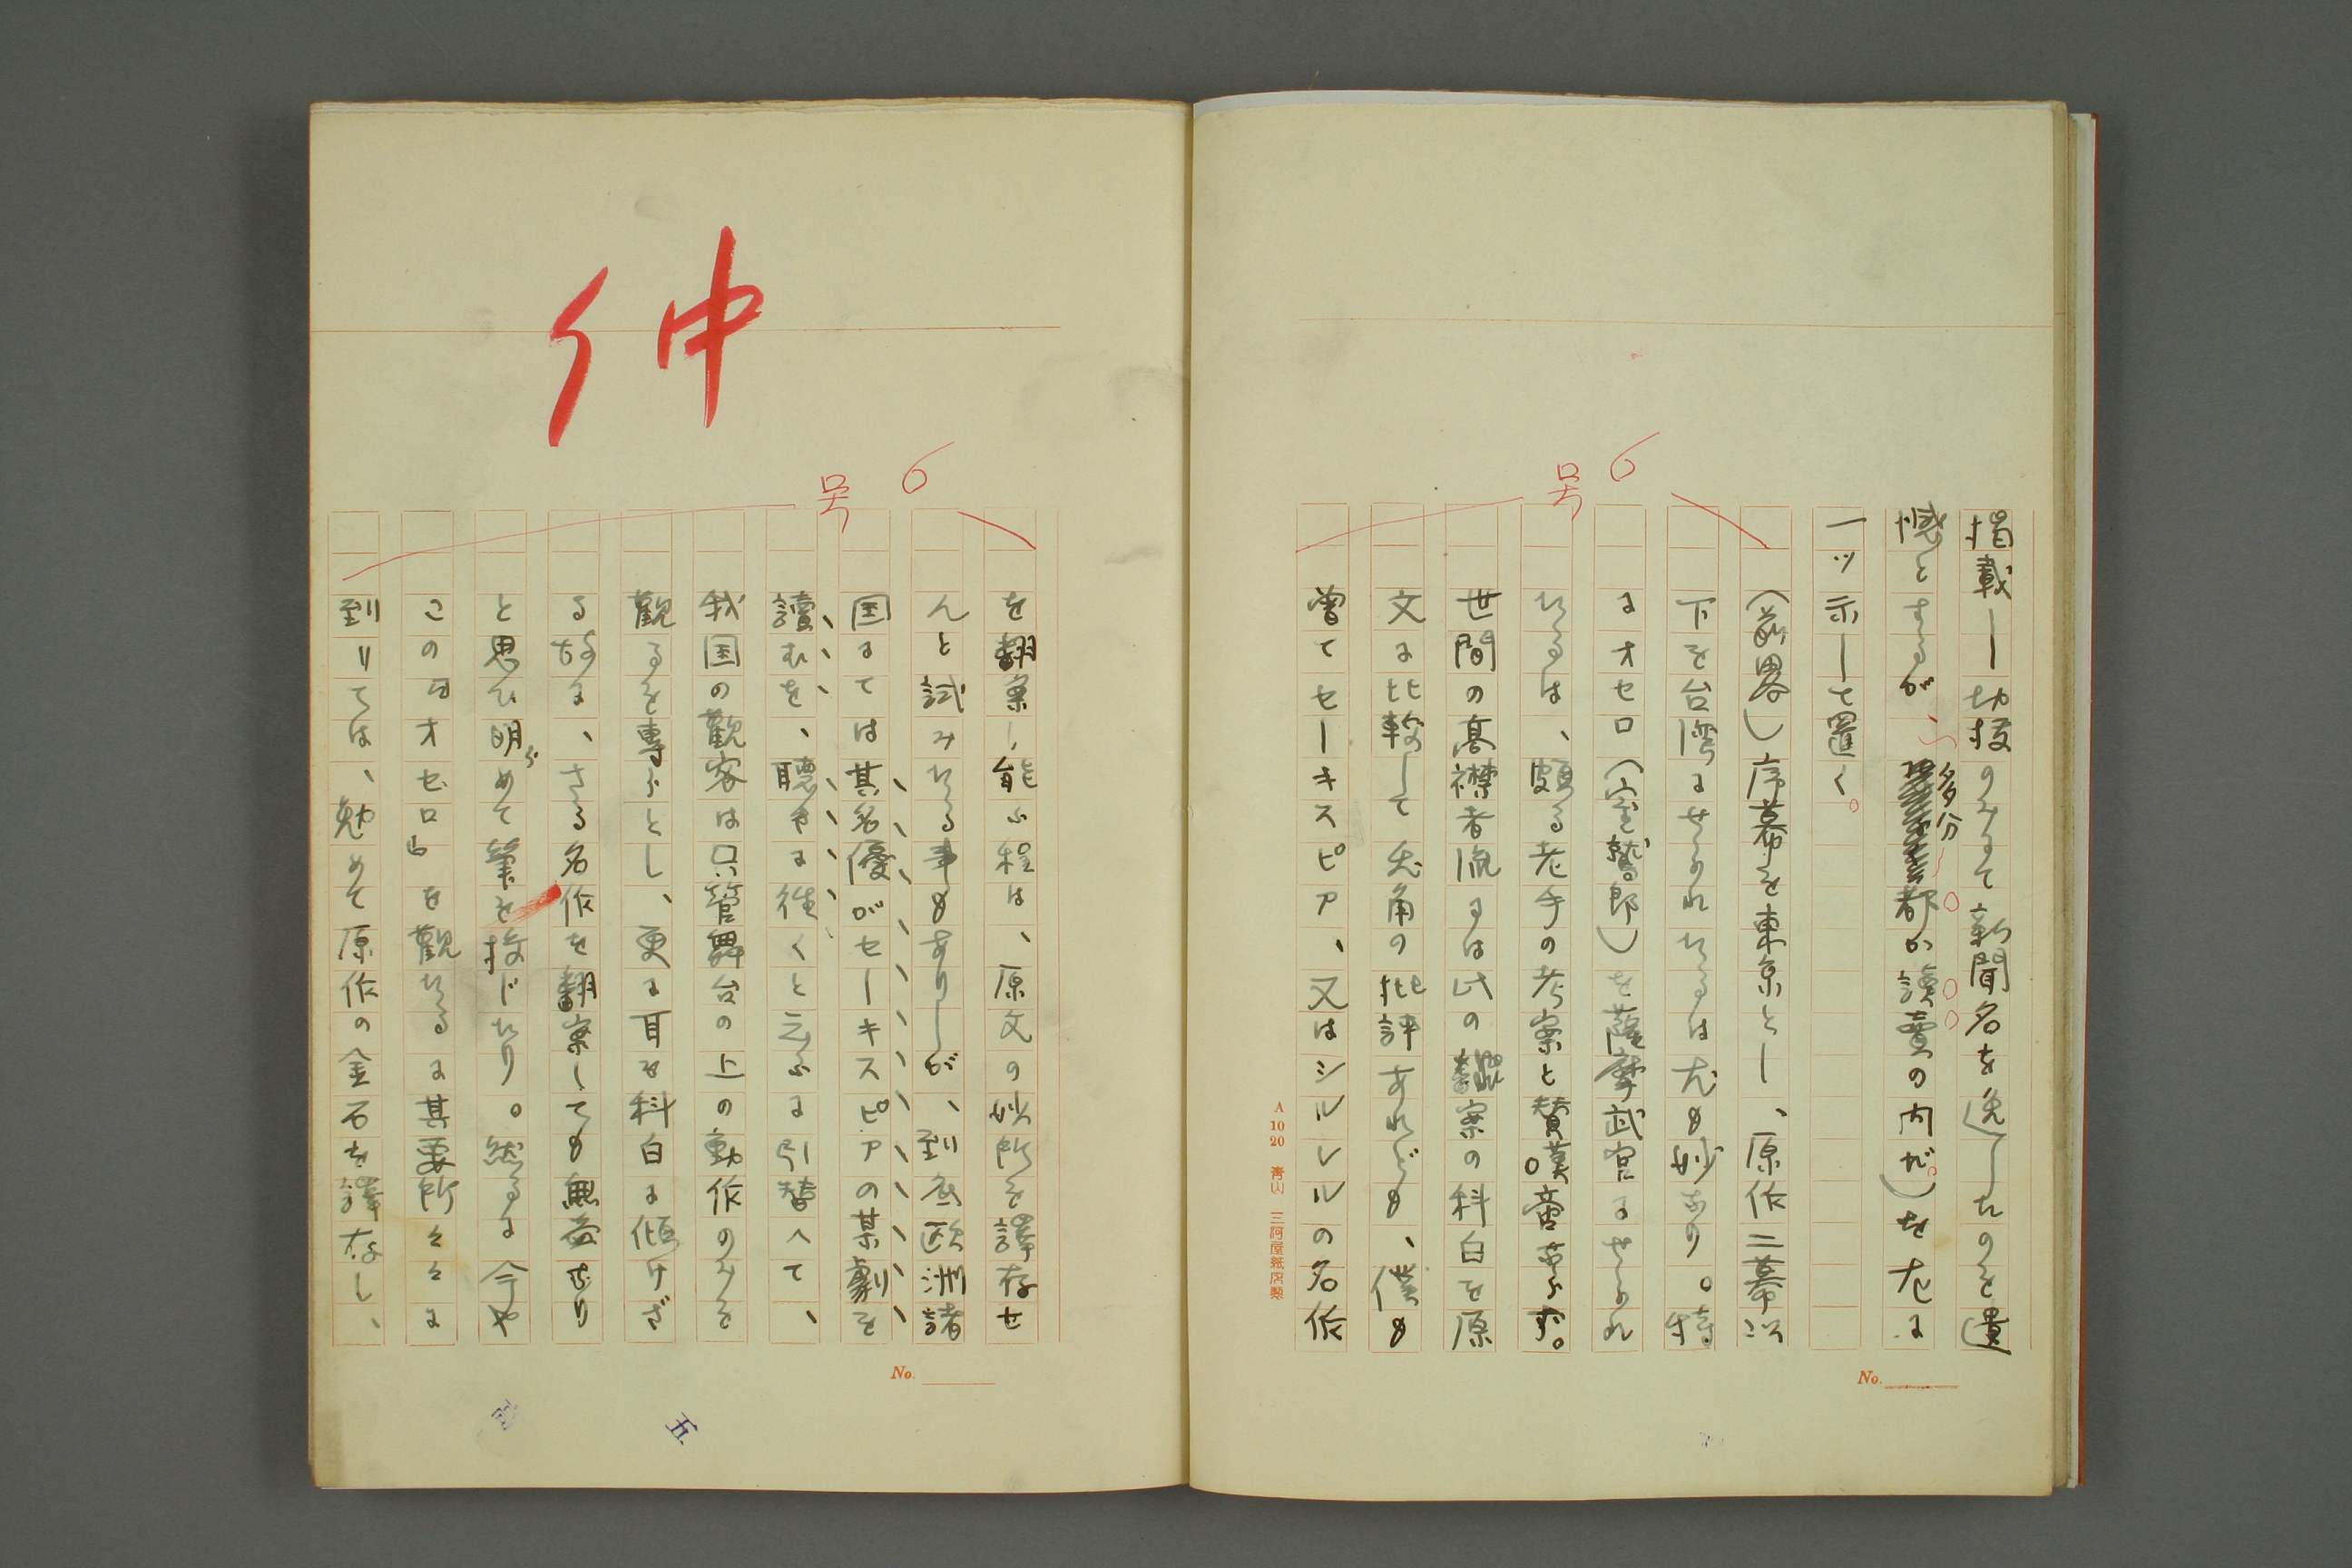 6
号
掲載し切抜のみにて新聞名を逸したのを遺
憾とするが、(多分都か讀賣の内だ)を左に
一ツ示して置く。
(前畧)序幕を東京とし、原作二幕以
下を台湾にせられたるは尤も妙なり。特
にオセロ(室鷲郎)を薩摩武官にせられ
たるは、頗る老手の考案と賛嘆。啻ならず。
世間の高襟者流には此の翻案の科白を原
文に比較して兎角の批評あれども、僕も
曽てセーキスピア、又はシルレルの名作
A 10 20 青山 三河屋紙店製
No.
伸
6
号
を翻案し能ふ程は、原文の妙所を譯存せ
んと試みたる事もありしが、到底欧洲諸
国にては其名優がセーキスピアの某劇を
讀むを、聴きに徃くと云ふに引替へて、
我国の觀客は只管舞台の上の動作のみを
觀るを専らとし、更に耳を科白に傾けざ
る故に、さる名作を翻案しても無益なり
と思ひ明らめて筆を投じたり。然るに今や
この『オセロ』を觀たるに其要所々々に
到りては、勉めて原作の金石を譯存し、
No.
五